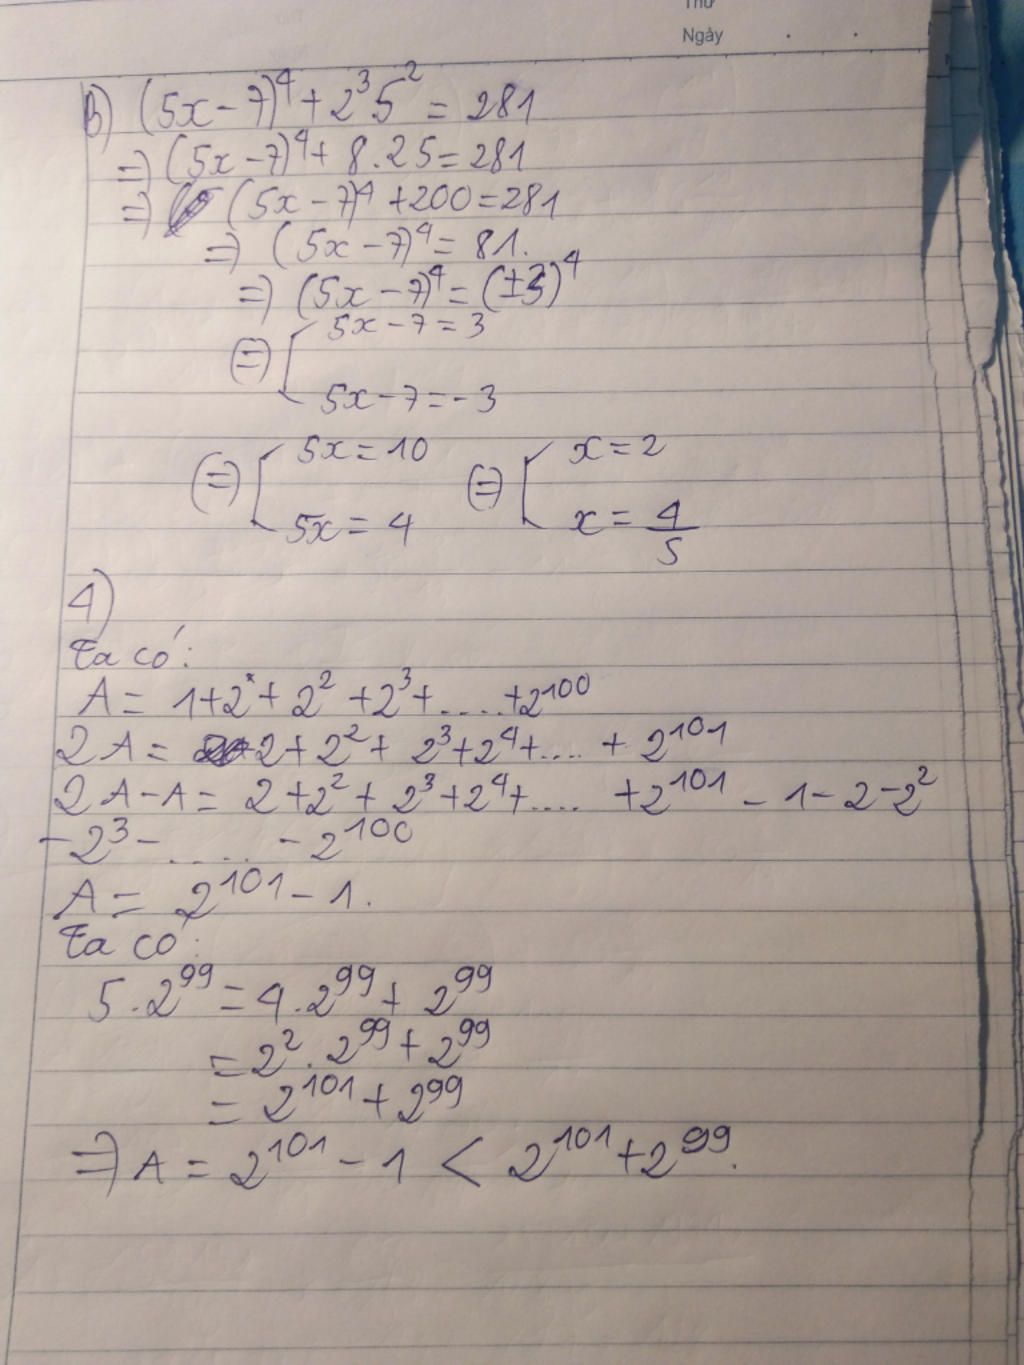 Thứ
Ngày
b) (5x-7)⁴ + 2³5² = 281
=> (5x-7)⁴ + 8.25 = 281
=> (5x-7)⁴ + 200 = 281
=> (5x-7)⁴ = 81.
=> (5x-7)⁴ = (±3)⁴
(=) [ 5x-7 = 3
5x-7 = -3
(=) [ 5x = 10 (=) [ x = 2
5x = 4 x = 4/5
4)
Ta có:
A = 1+2+2²+2³+....+2¹⁰⁰
2A = 2+2²+2³+2⁴+....+2¹⁰¹
2A-A = 2+2²+2³+2⁴+....+2¹⁰¹-1-2-2²
-2³-.....-2¹⁰⁰
A = 2¹⁰¹-1.
Ta có:
5.2⁹⁹ = 4.2⁹⁹+2⁹⁹
= 2².2⁹⁹+2⁹⁹
= 2¹⁰¹+2⁹⁹
=> A = 2¹⁰¹-1 < 2¹⁰¹+2⁹⁹.